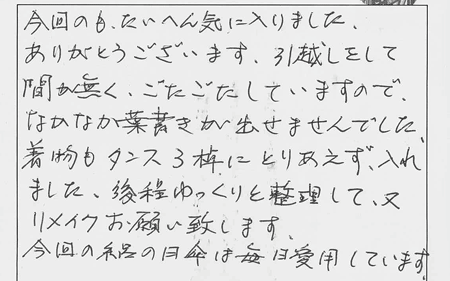 今回のも、たいへん気に入りました、
ありがとうございます、引越しをして
間が無く、ごたごたしていますので、
なかなか葉書きが出せませんでした、
着物もタンス3棹にとりあえず、入れ
ました、後程ゆっくりと整理して、又
リメイクお願い致します、
今回の絽の日傘は毎日愛用しています、